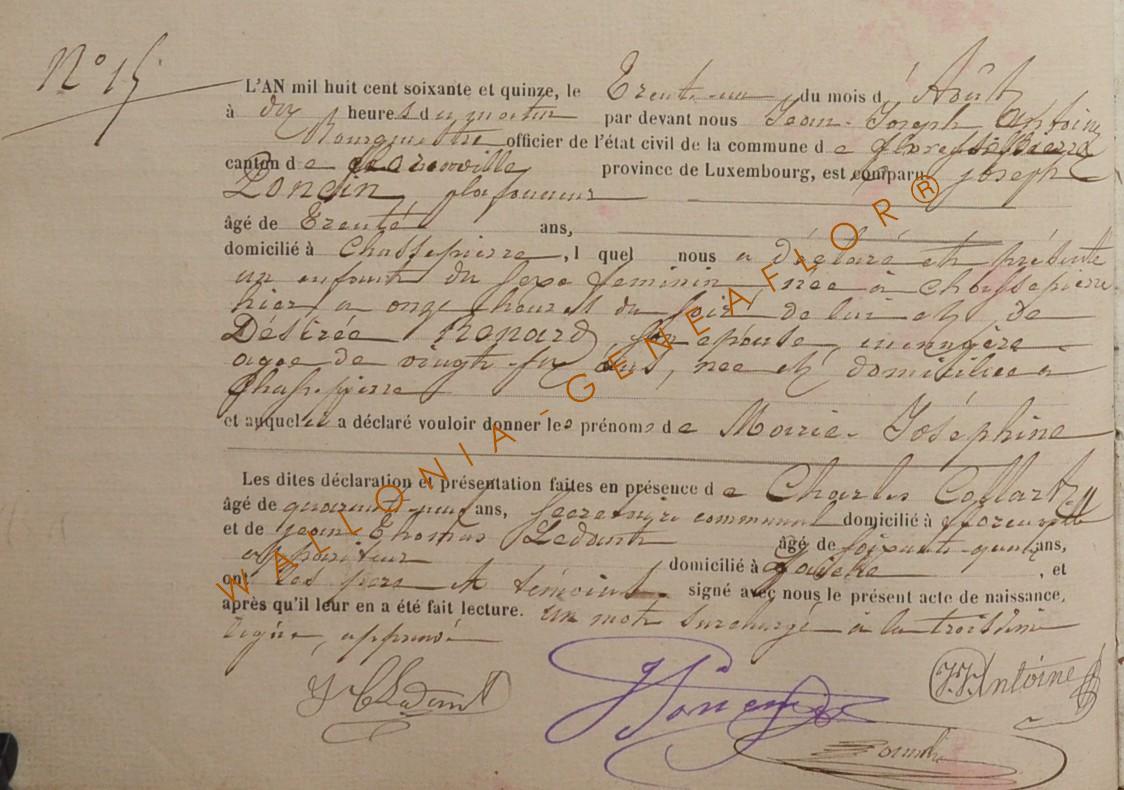 N° 15
L'AN mil huit cent soixante et quinze, le Trente-un du mois d' Août
à dix heures du matin par devant nous Jean-Joseph Antoine
Bourgmestre officier de l'état civil de la commune de
canton de province de Luxembourg, est comparu Joseph
Poncin plafonneur
âgé de Trente ans,
domicilié à Chassepierre, l quel nous a déclaré et présenté
un enfant du sexe féminin, née à Chassepierre
hier a onze heures du soir de lui et de
Désirée Renard, son épouse, ménagère
agée de vingt-six ans, née et domiciliée a
Chassepierre
et auquel il a déclaré vouloir donner les prénoms de Marie-Joséphine
Les dites déclaration et présentation faites en présence de Charles Collart
âgé de quarante-neuf ans, Secretaire communal domicilié à Florenville
et de Jean Thomas Ledant âgé de soixante-quatre ans,
appariteur domicilié à , et
ont les père et témoins signé avec nous le présent acte de naissance,
après qu'il leur en a été fait lecture. Un mot surchargé à la troisième
ligne, approuvé
J T Ledant
J Poncin
J.J. Antoine
WALLONIA-GENEAFLOR®